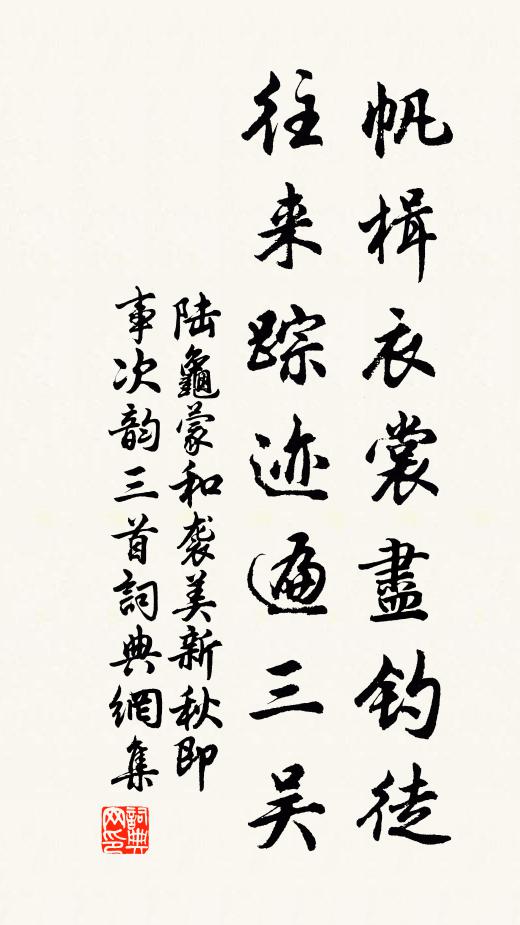 帆楫衣裳盡钓徒
往来踪迹遍三吴
陆龜蒙和袭美新秋即
事次韵三首詞典網集
詞典
网印